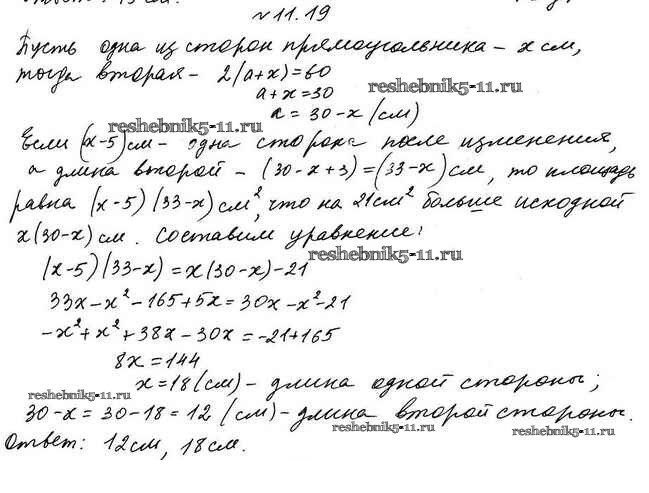 №11.19
Пусть одна из сторон прямоугольника - x см,
тогда вторая - 2(a+x)=60
a+x=30
reshebnik5-11.ru
a = 30-x (см)
reshebnik5-11.ru
Если (x-5)см - одна сторона после изменения,
а длина второй - (30-x+3)=(33-x)см, то площадь
равна (x-5)(33-x)см², что на 21см² больше исходной
x(30-x)см. Составим уравнение:
reshebnik5-11.ru
(x-5)(33-x)=x(30-x)-21
33x-x²-165+5x=30x-x²-21
-x²+x²+38x-30x=-21+165
8x=144
x=18(см)- длина одной стороны;
reshebnik5-11.ru
30-x=30-18=12 (см)-длина второй стороны.
reshebnik5-11.ru
reshebnik5-11.ru
Ответ: 12см, 18см.